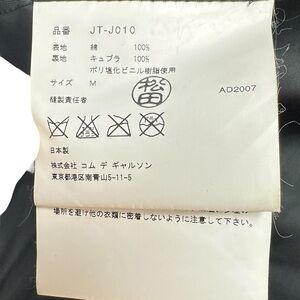 品番 JT-J010
表地 綿 100%
裏地 キュプラ 100%
ポリ塩化ビニル樹脂使用
サイズ M
松田
AD2007
縫製責任者
日本製
株式会社 コム デ ギャルソン
東京都港区南青山5-11-5
場所を避け他の衣類に密着しないように注意して下さい。